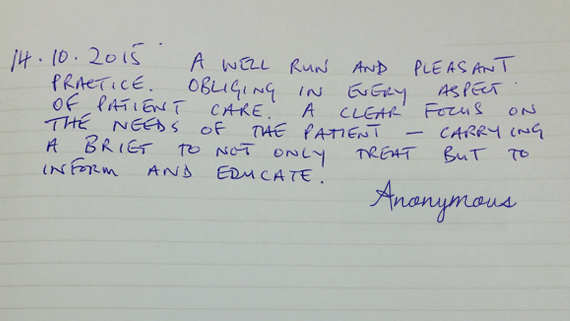 14.10.2015 A WELL RUN AND PLEASANT
PRACTICE. OBLIGING IN EVERY ASPECT
OF PATIENT CARE. A CLEAR FOCUS ON
THE NEEDS OF THE PATIENT – CARRYING
A BRIEF TO NOT ONLY TREAT BUT TO
INFORM AND EDUCATE.
Anonymous